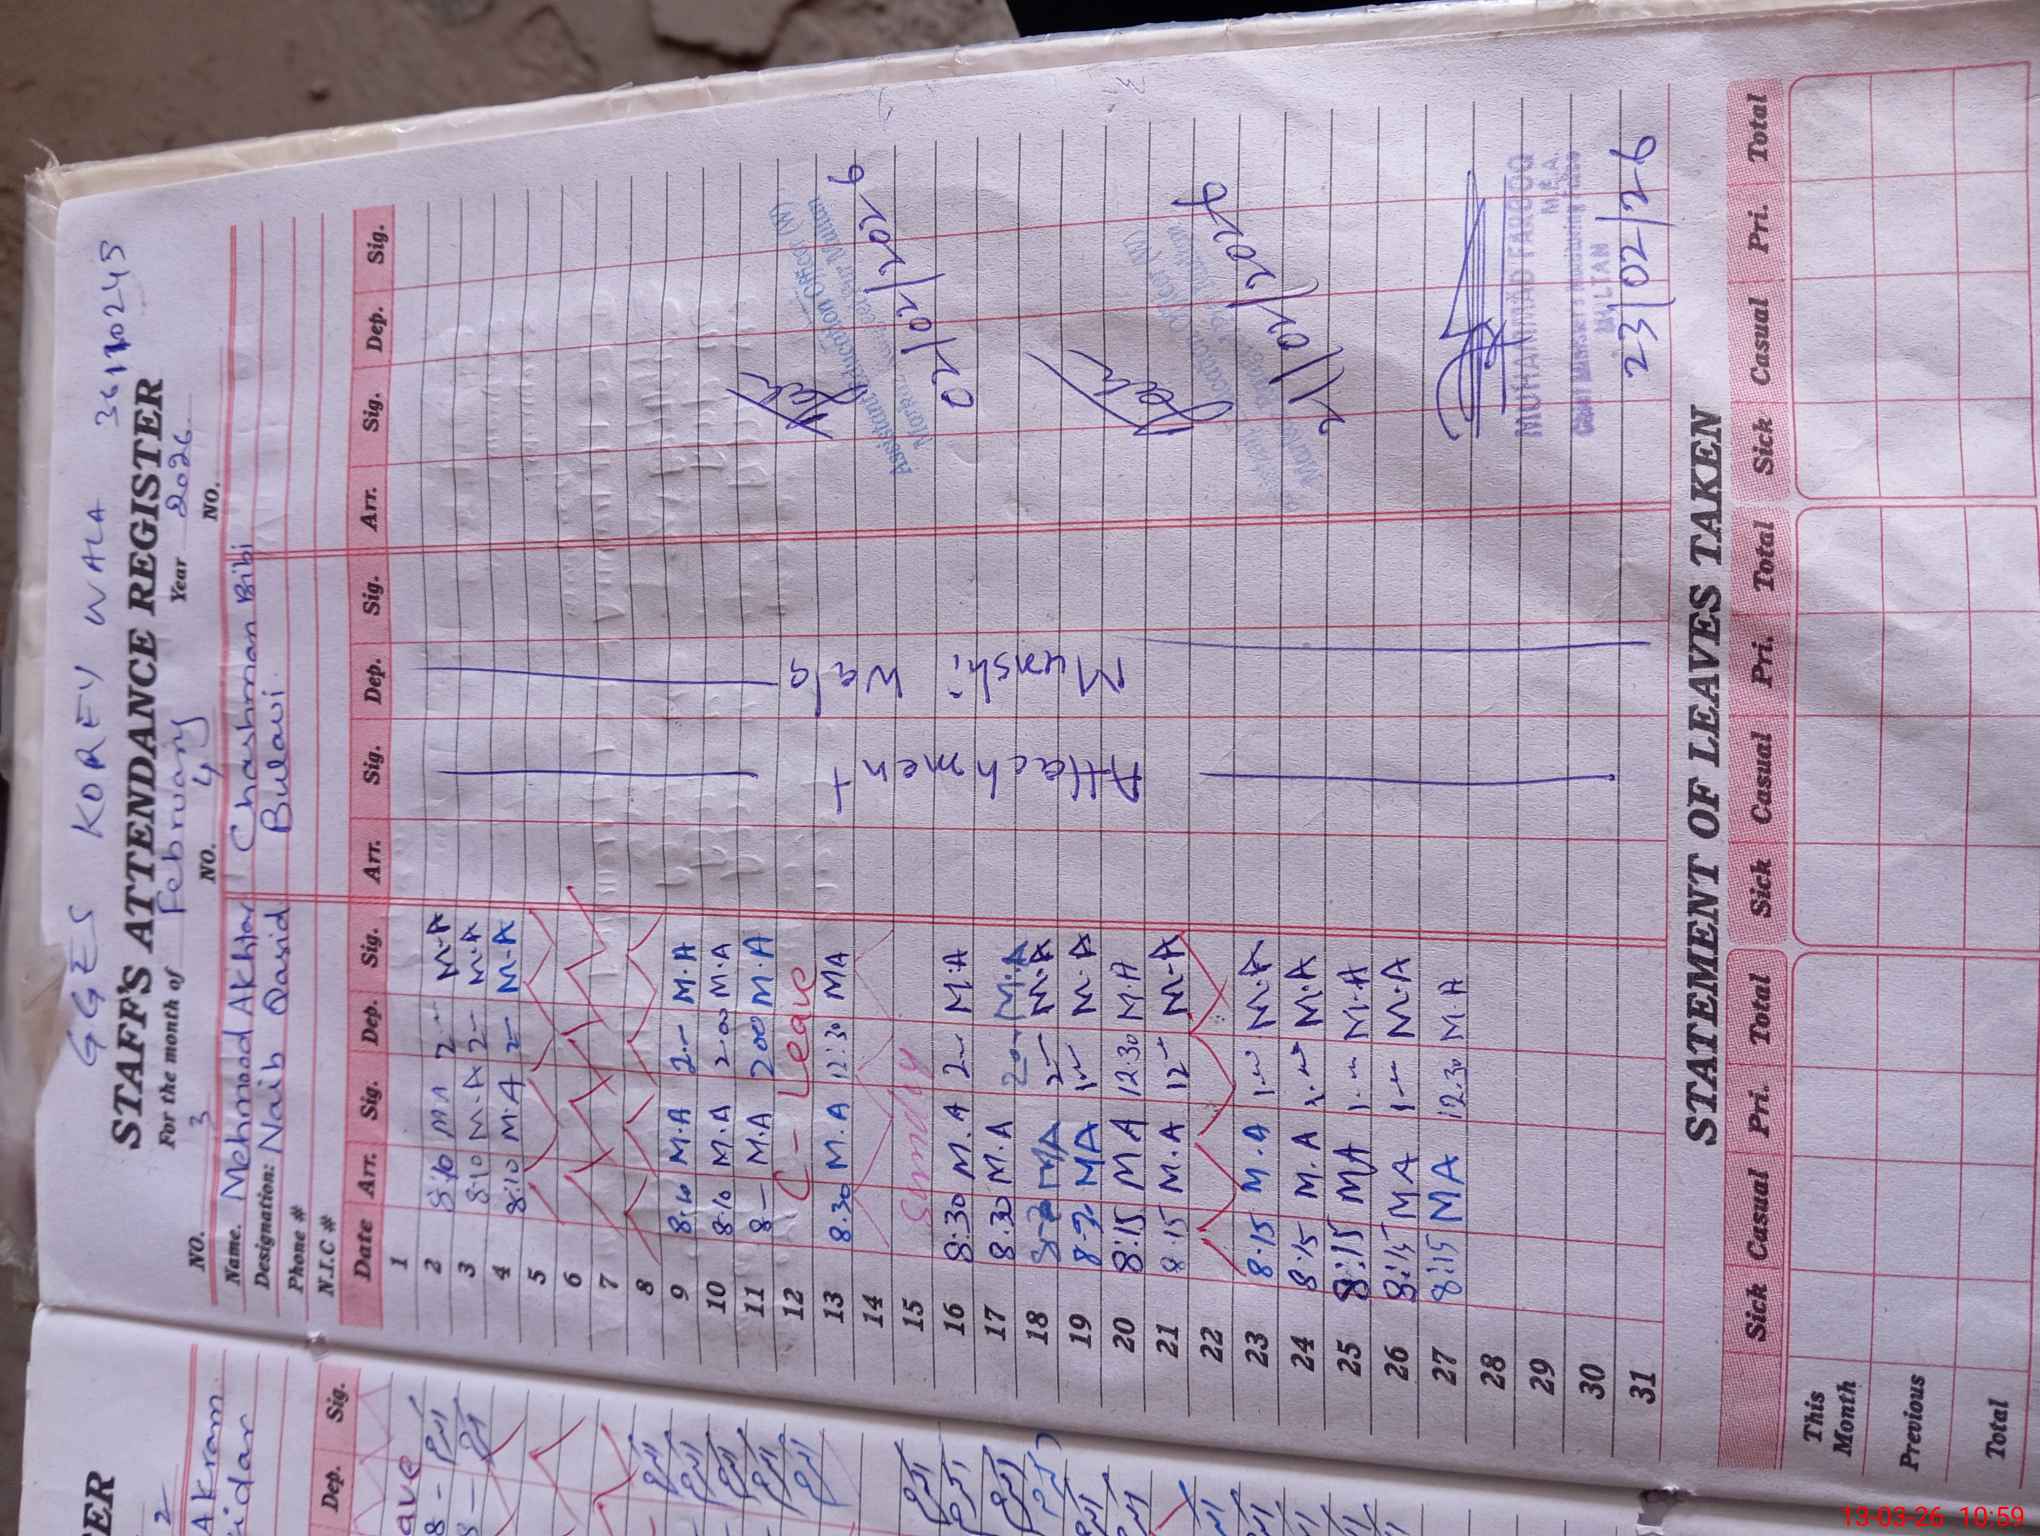 GGES KOREY WALA 36110245
STAFF'S ATTENDANCE REGISTER
For the month of February Year 2026
NO. 3 NO. 4 NO.
Name. Mehmood Akhtar Chashman Bibi
Designation: Naib Qasid Bulawi
Phone #
N.I.C #
Date Arr. Sig. Dep. Sig. Arr. Sig. Dep. Sig. Arr. Sig. Dep. Sig.
1
2 8:10 MA 2- M-A
3 8:10 M.A 2- M.A
4 8:10 M.A 2- M.A
5
6
7
8
9 8.10 M.A 2- M.A
10 8.10 M.A 2.00 M.A
11 8- M.A 200 M.A
12 C- Leave
13 8.30 M.A 12:30 MA
14
15 Sunday
16 8.30 M.A 2- M.A
17 8.30 M.A 2- M.A
18 MA 2- M.A
19 MA 1- M.A
20 8:15 MA 12.30 M.A
21 8.15 M.A 12- M-A
22
23 8.15 M.A 1- M.A
24 8:15 M.A 1- M.A
25 8:15 MA 1- M.A
26 8:15 MA 1- M.A
27 8:15 MA 12.30 MA
28
29
30
31
Attachment
Munshi Wala
Assistant Education Officer (W)
02/02/2026
21/02/2026
MUHAMMAD FAROOQ
M.E.A.
MULTAN
23/02/26
STATEMENT OF LEAVES TAKEN
Sick Casual Pri. Total Sick Casual Pri. Total Sick Casual Pri. Total
This Month
Previous
Total
Akram
Dep. Sig.
13-03-26 10:59